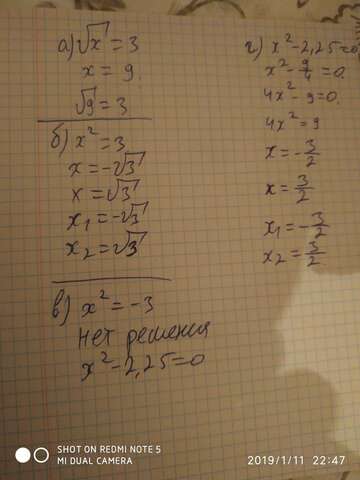 а) √x = 3
x = 9.
√9 = 3
б) x² = 3
x = -√3
x = √3
x₁ = -√3
x₂ = √3
в) x² = -3
нет решения
x² - 2,25 = 0
г) x² - 2,25 = 0
x² - 9/4 = 0.
4x² - 9 = 0.
4x² = 9
x = - 3/2
x = 3/2
x₁ = - 3/2
x₂ = 3/2
SHOT ON REDMI NOTE 5
MI DUAL CAMERA
2019/1/11 22:47